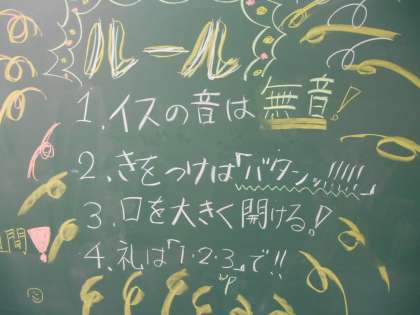 ルール
1.イスの音は無音!
2.きをつけは「バタンッ!!!!!」
3.口を大きく開ける!
4.礼は「1・2・3」で!!
up
間!